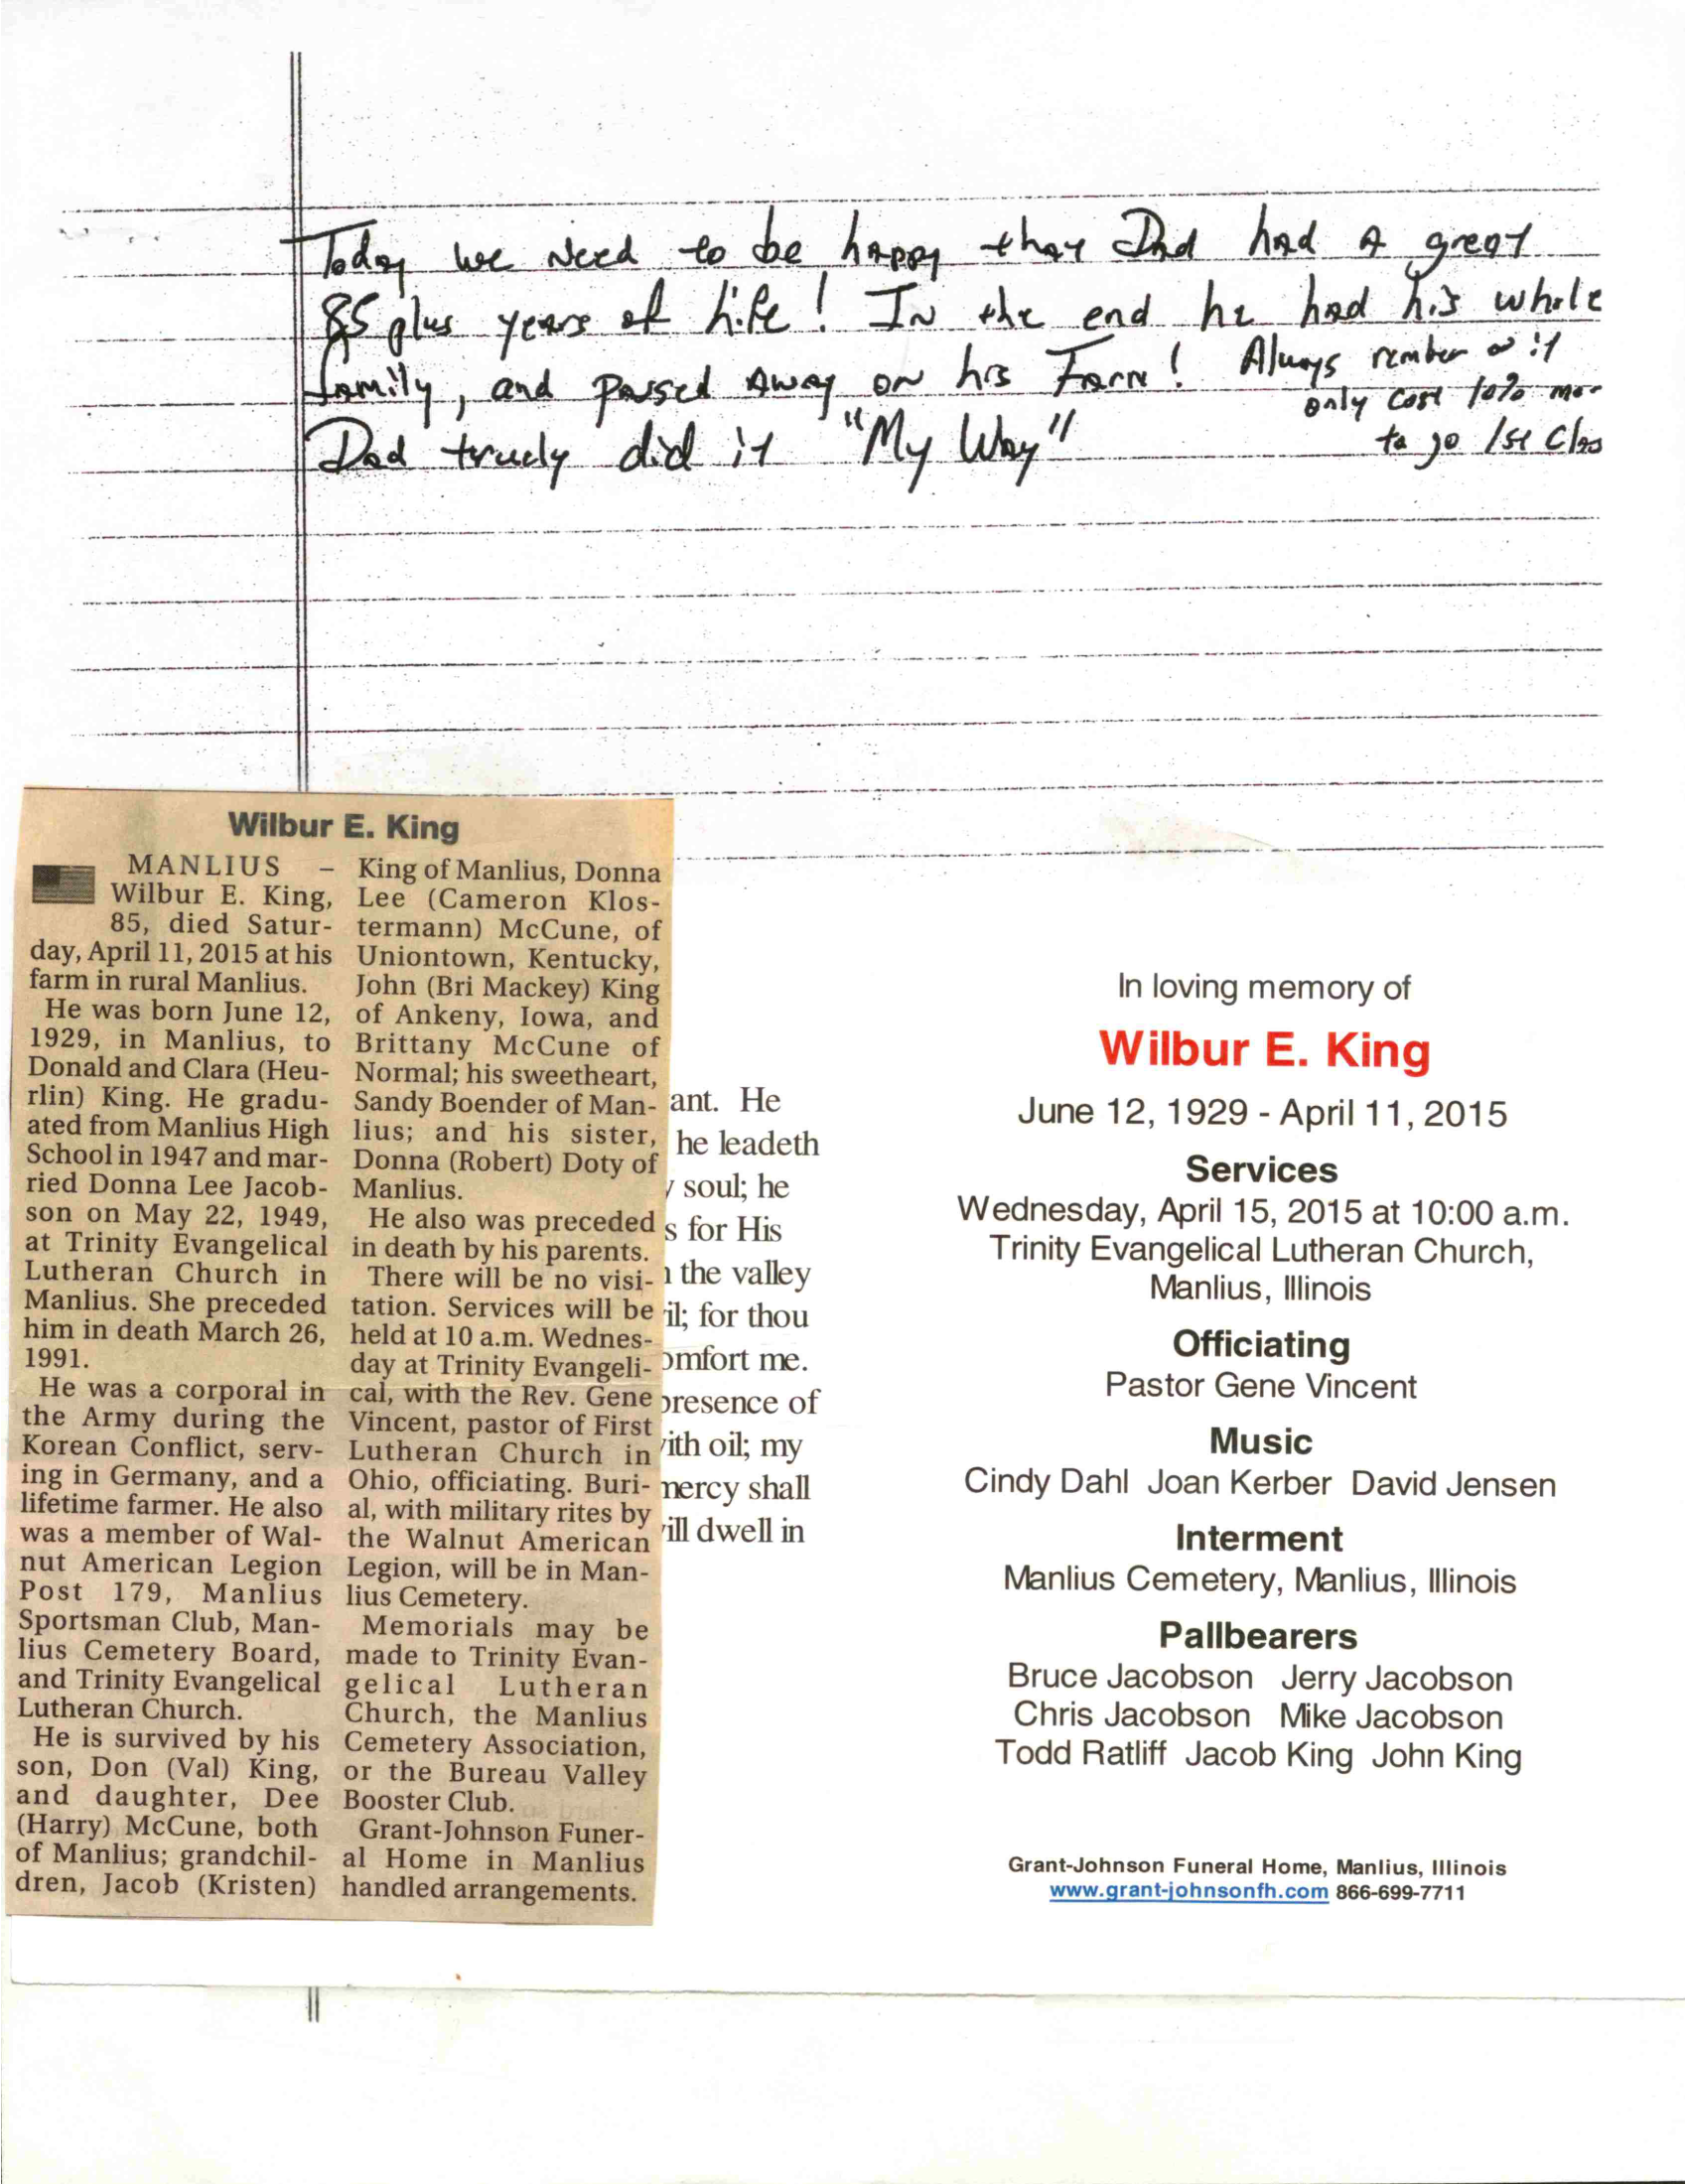 Today we Need to be happy that Dad had A great
85 plus years of Life! IN the end he had his whole
family, and passed Away ON his Farm! Always rember it
only cost 10% more
to go 1st Class
Dad truely did it "My Way"
Wilbur E. King
MANLIUS –
Wilbur E. King,
85, died Satur-
day, April 11, 2015 at his
farm in rural Manlius.
He was born June 12,
1929, in Manlius, to
Donald and Clara (Heu-
rlin) King. He gradu-
ated from Manlius High
School in 1947 and mar-
ried Donna Lee Jacob-
son on May 22, 1949,
at Trinity Evangelical
Lutheran Church in
Manlius. She preceded
him in death March 26,
1991.
He was a corporal in
the Army during the
Korean Conflict, serv-
ing in Germany, and a
lifetime farmer. He also
was a member of Wal-
nut American Legion
Post 179, Manlius
Sportsman Club, Man-
lius Cemetery Board,
and Trinity Evangelical
Lutheran Church.
He is survived by his
son, Don (Val) King,
and daughter, Dee
(Harry) McCune, both
of Manlius; grandchil-
dren, Jacob (Kristen)
King of Manlius, Donna
Lee (Cameron Klos-
termann) McCune, of
Uniontown, Kentucky,
John (Bri Mackey) King
of Ankeny, Iowa, and
Brittany McCune of
Normal; his sweetheart,
Sandy Boender of Man-
lius; and his sister,
Donna (Robert) Doty of
Manlius.
He also was preceded
in death by his parents.
There will be no visi-
tation. Services will be
held at 10 a.m. Wednes-
day at Trinity Evangeli-
cal, with the Rev. Gene
Vincent, pastor of First
Lutheran Church in
Ohio, officiating. Buri-
al, with military rites by
the Walnut American
Legion, will be in Man-
lius Cemetery.
Memorials may be
made to Trinity Evan-
gelical Lutheran
Church, the Manlius
Cemetery Association,
or the Bureau Valley
Booster Club.
Grant-Johnson Funer-
al Home in Manlius
handled arrangements.
ant. He
he leadeth
soul; he
s for His
the valley
il; for thou
omfort me.
presence of
ith oil; my
mercy shall
ill dwell in
In loving memory of
Wilbur E. King
June 12, 1929 - April 11, 2015
Services
Wednesday, April 15, 2015 at 10:00 a.m.
Trinity Evangelical Lutheran Church,
Manlius, Illinois
Officiating
Pastor Gene Vincent
Music
Cindy Dahl Joan Kerber David Jensen
Interment
Manlius Cemetery, Manlius, Illinois
Pallbearers
Bruce Jacobson Jerry Jacobson
Chris Jacobson Mike Jacobson
Todd Ratliff Jacob King John King
Grant-Johnson Funeral Home, Manlius, Illinois
www.grant-johnsonfh.com 866-699-7711